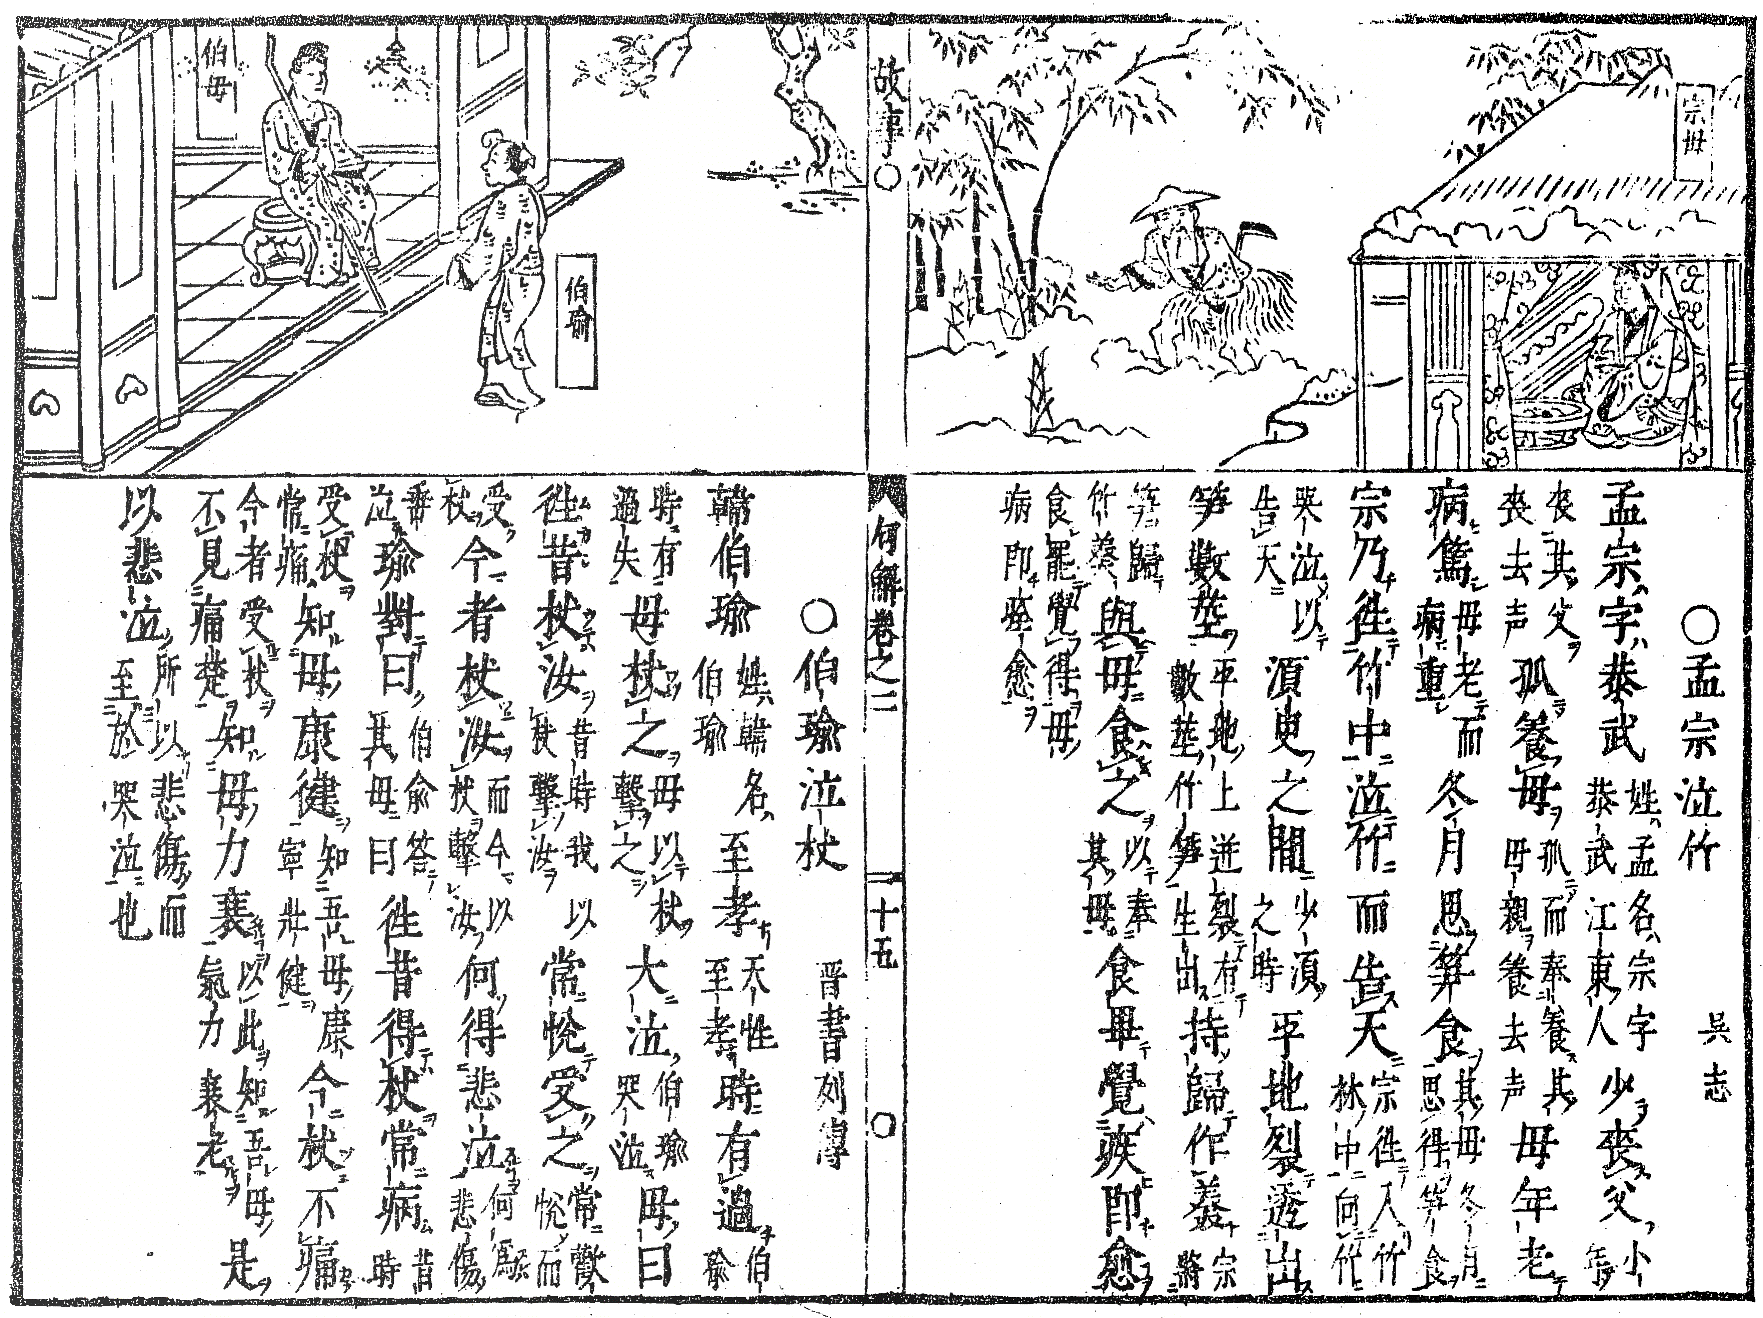 宗母
孟宗泣竹　吳志
孟宗字恭武
姓孟名宗字
恭武江東人
少丧父
小
年
丧其父
丧去声
孤養母
孤而奉養其
母親養去声
母年老
病篤
母老而
病重
冬月思笋食
其母冬月
思得笋食
宗乃徃竹中泣竹而告天
宗徃入竹
林中向竹
哭泣以
告天
須臾之間
少湏
之時
平地裂透出
笋數莖
平地上迸裂有
數莖竹笋生出
持歸作羹
宗
將
笋歸
竹羹
與母食之
以奉
其母
食畢覺疾即愈
食罷覺得母
病即痊愈
故事
句解卷之二
十五
伯母
伯瑜
伯瑜泣杖　晋書列傳
韓伯瑜
姓韓名
伯瑜
至孝
天性
至孝
時有過
伯
瑜
時有
過失
母杖之
母以杖
擊之
大泣
伯瑜
哭泣
母曰
徃昔杖汝
昔時我以
杖擊汝
常悅受之
常歡
悅而
受
杖
今者杖汝
而今以
杖擊汝
何得悲泣
何為
悲傷
垂
泣
瑜對曰
伯俞答
其母曰
徃昔得杖常病
昔
時
受杖
常痛
知母康健
知吾母康
寧壯健
今杖不痛
今者受杖
不見痛楚
知母力衰
以此知吾母
氣力衰老
是
以悲泣
所以悲傷而
至於哭泣也